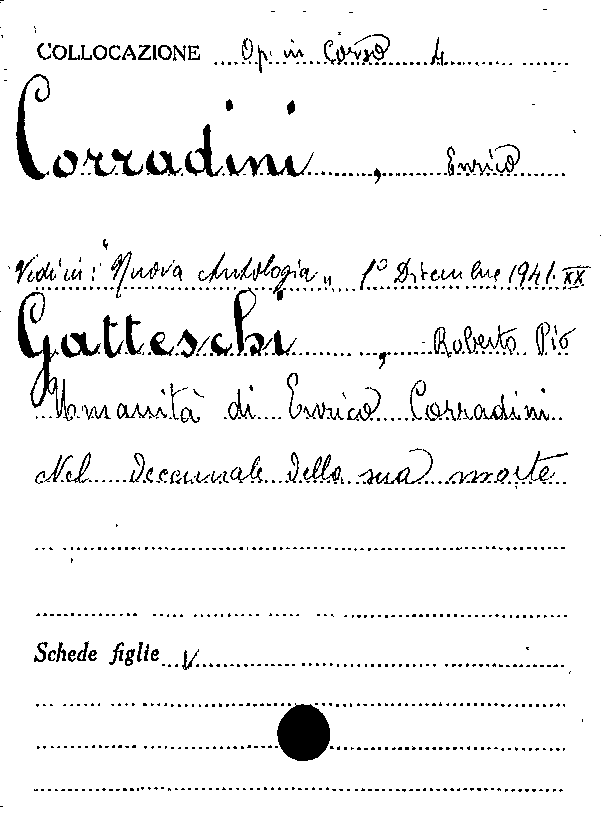 COLLOCAZIONE Op. in Corso 4
Corradini, Enrico
Vedi in: "Nuova Antologia„ 1° Dicembre 1941. XX
Gatteschi, Roberto Pio
Umanità di Enrico Corradini
Nel decennale della sua morte
Schede figlie V